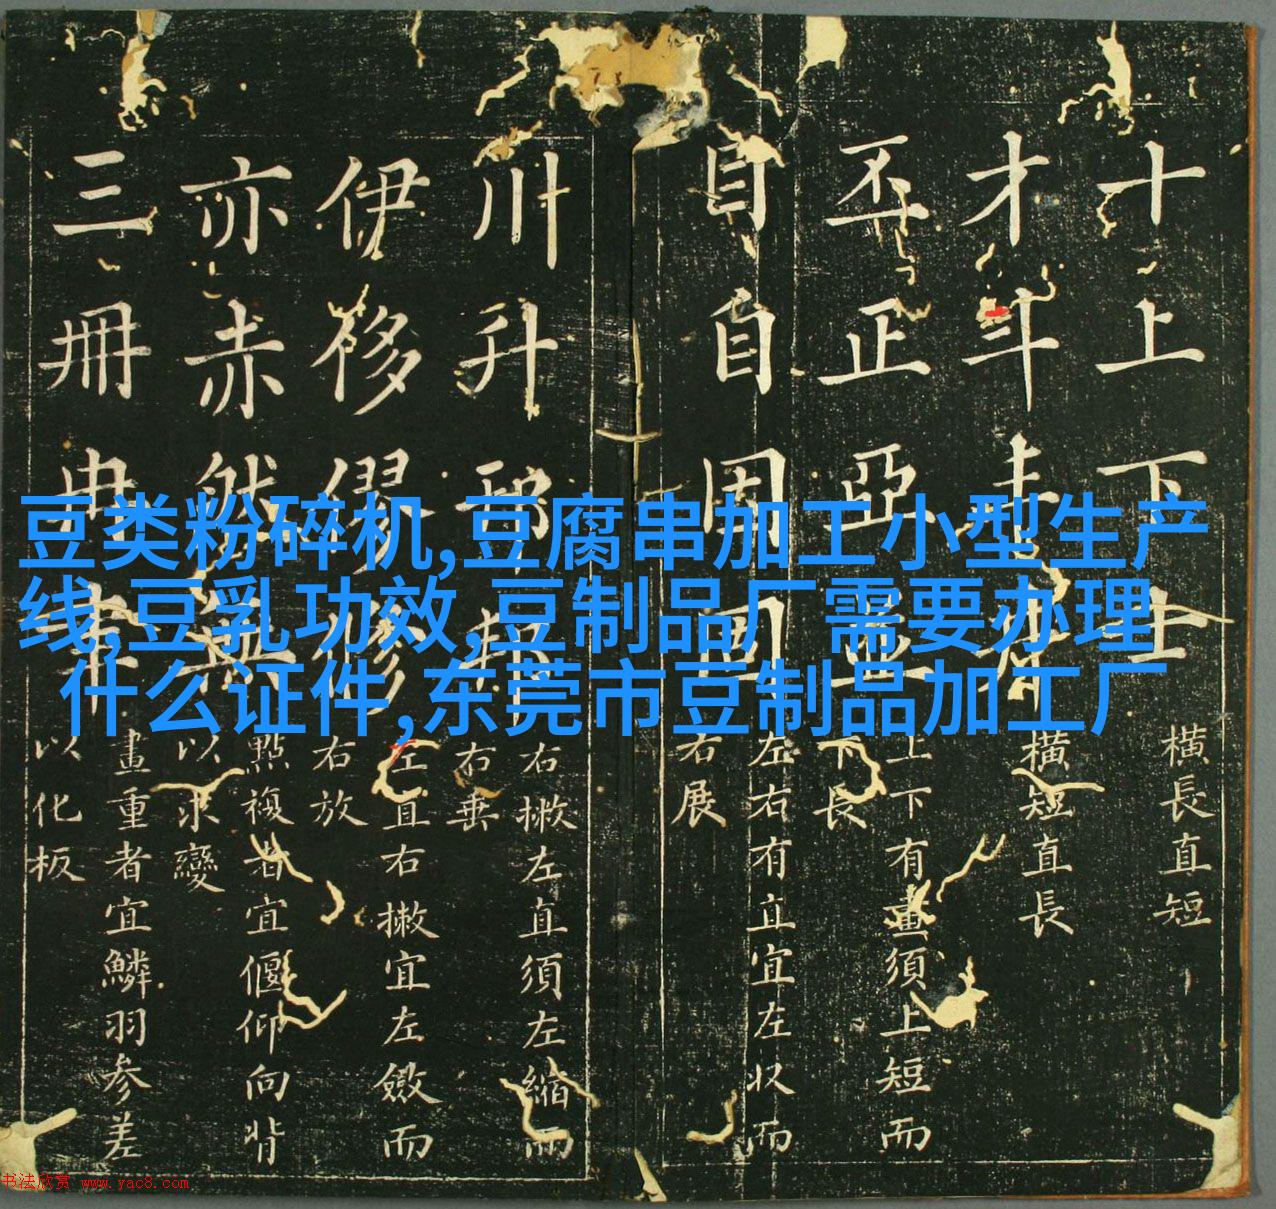 豆类粉碎机,豆腐串加工小型生产
线,豆乳功效,豆制品厂需要办理
什么证件,东莞市豆制品加工厂
十上下士
橫長直短
才斗
橫短直長
丕正亞
上下有畫須上短而
下長
目自因
左右有直宜左収而
右展
川升
右撇左直須左縮而
右垂
伊侈
左直右撇宜左斂而
右放
亦赤然無
點複者宜偃仰向背
以求變
三冊冉
畫重者宜鱗羽参差
以化板
书法欣赏 www.yac8.com